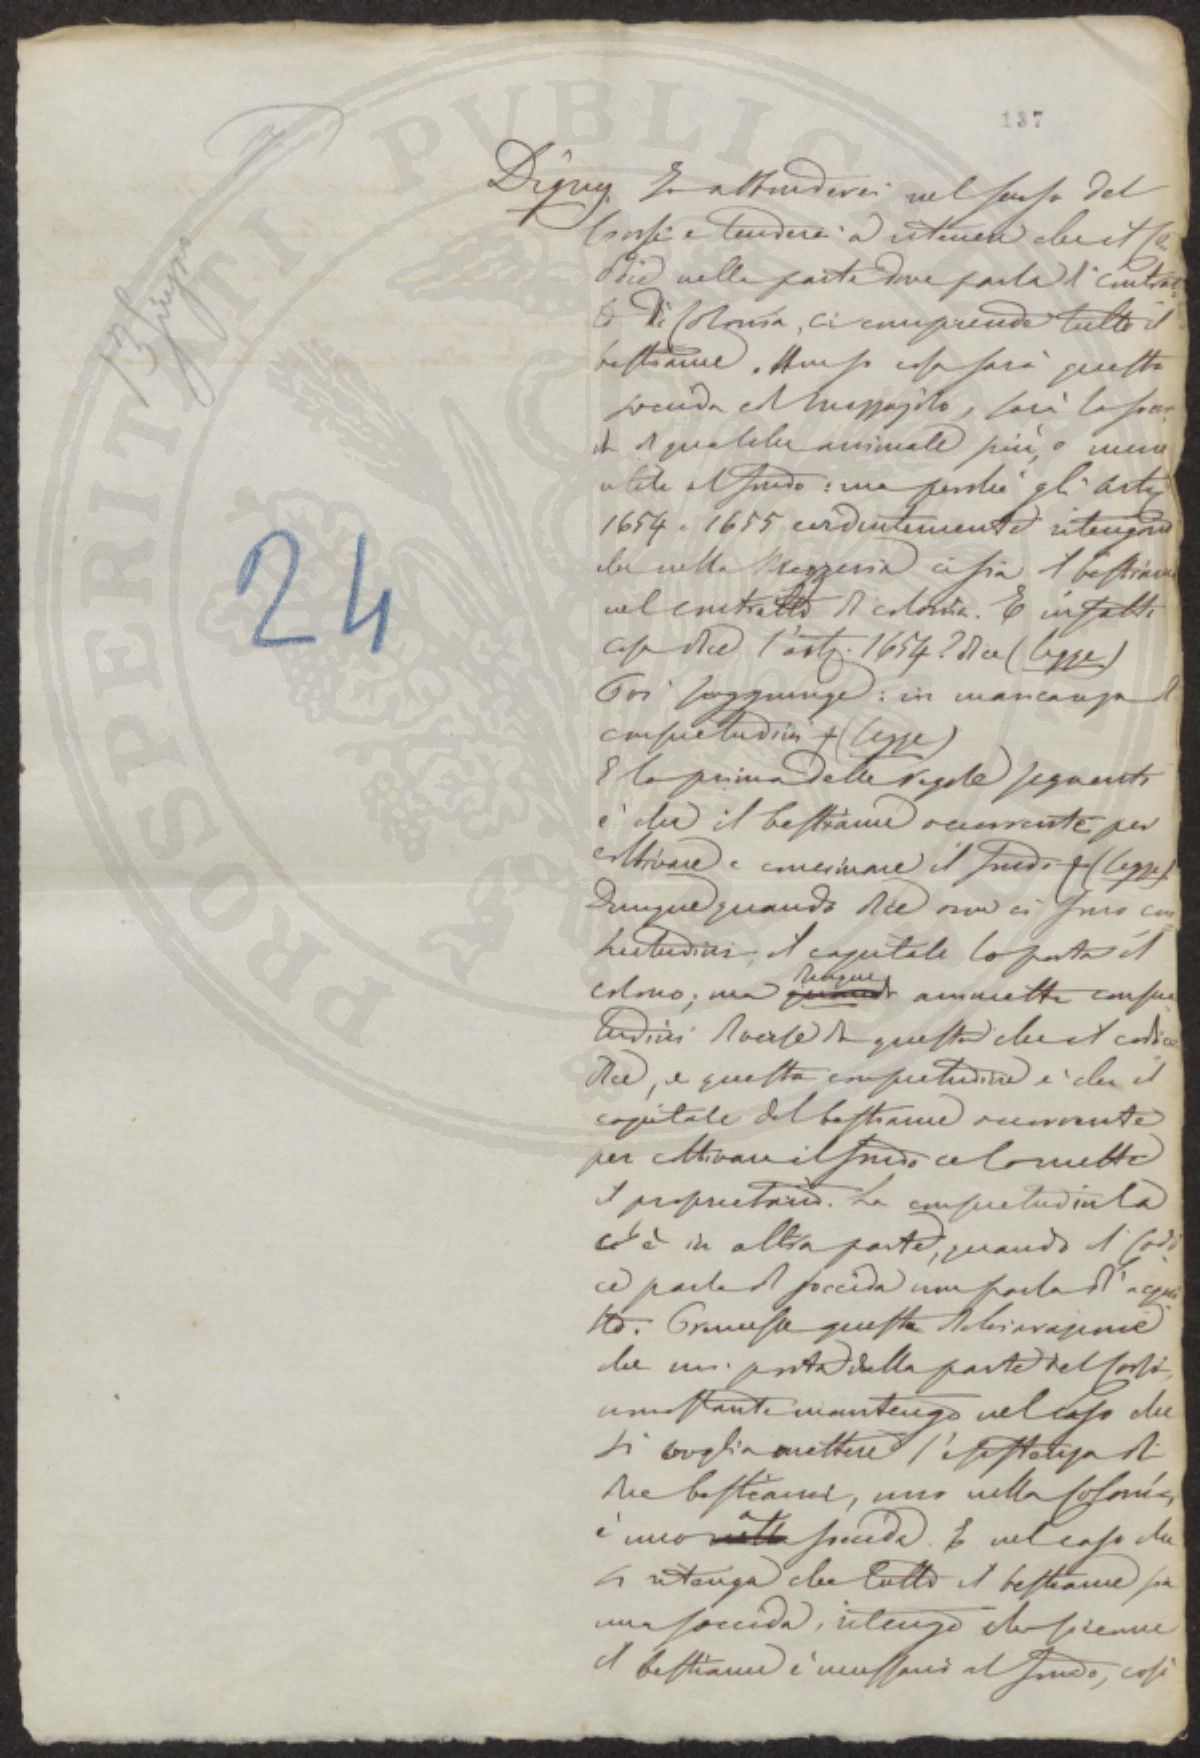 137
13 Giugno
24
Digny. Io attenderei nel senso del
Corsi e tenderei a ritenere che il Co
dice nella parte dove parla di contrat
to di Colonia, ci comprenda tutto il
bestiame. Ammesso cosa sarà questa
soccida col Mezzajolo, sarà la socci
da di qualche animale più, o meno
utile al fondo: ma perchè gli Artj
1654 e 1655 evidentemente ritengono
che nella Mezzeria ci sia il bestiame
nel contratto di colonia. E infatti
cosa dice l'artj. 1654? dice (legge)
Poi soggiunge: in mancanza di
consuetudini + (legge)
E la prima delle regole seguenti
è che il bestiame occorrente per
coltivare e concimare il fondo + (legge)
Dunque quando dice non ci sono con
suetudini, il capitale lo porta il
colono; ma dunque ammette consue
tudini diverse da questa che il codice
dice, e questa consuetudine è che il
capitale del bestiame occorrente
per coltivare il fondo ce lo mette
il proprietario. La consuetudine la
c'è in altra parte, quando il Codi
ce parla di soccida non parla di acqui
sto. Premessa questa dichiarazione
che mi porta dalla parte del Corsi,
nonostante mantengo nel caso che
si voglia mettere l'esistenza di
due bestiami, uno nella Colonia,
e uno a soccida. E nel caso che
si ritenga che tutto il bestiame sia
una soccida, ritengo che siccome
il bestiame è necessario al fondo, così